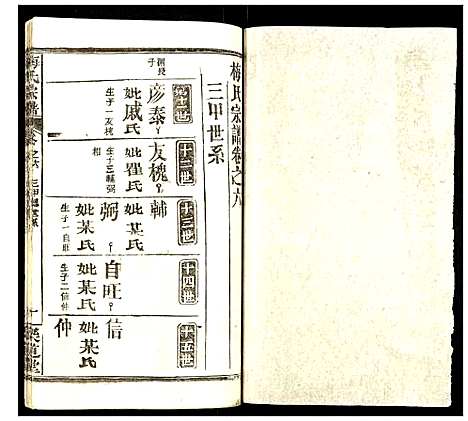 梅氏宗譜卷之八
三甲世系
十一世
十二世
十三世
十四世
十五世
彦泰
妣戚氏
生子一友槐
友槐
妣瞿氏
生子三輔弼
相
輔
妣某氏
弼
妣某氏
生子一自旺
自旺
妣某氏
生子二信仲
信
妣某氏
仲
梅氏宗譜
三甲總世系
樂道堂